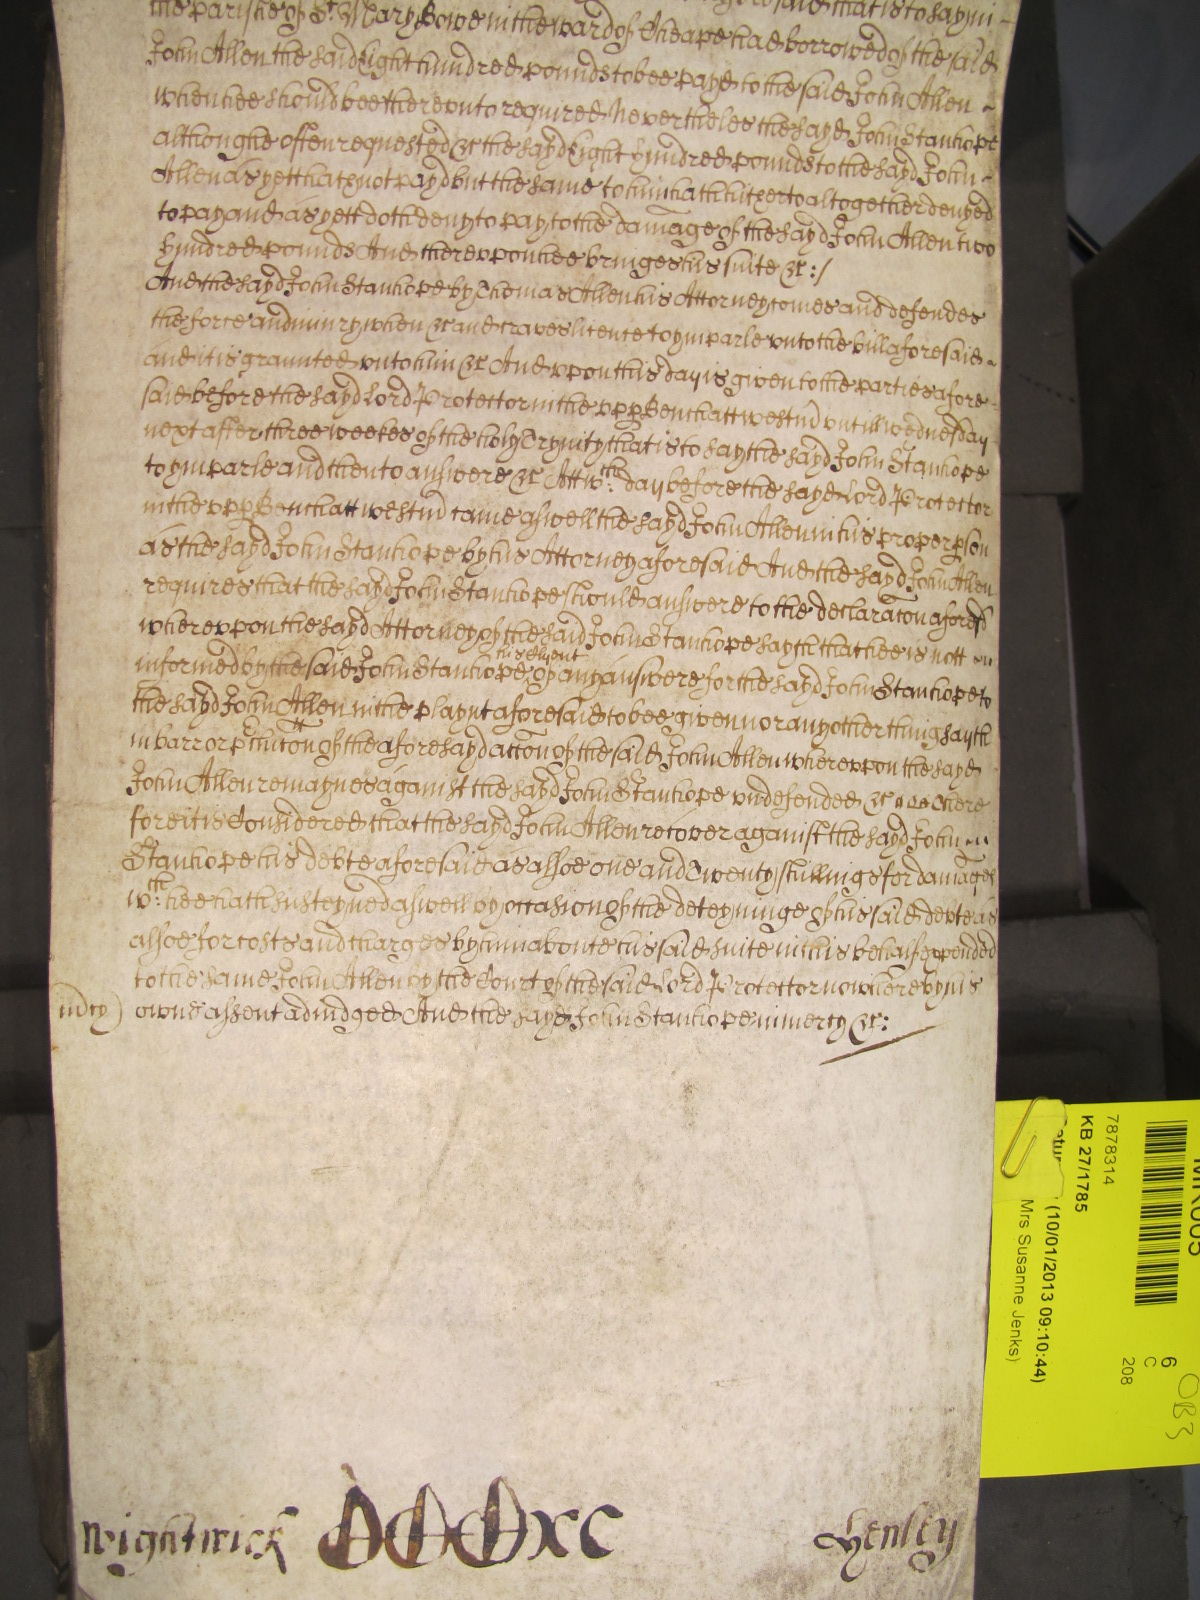 the parishe of St. Mary Bowe in the ward of Cheape had borrowed of the said
John Allen the said Eight hundred pounds to bee payd to the said John Allen
when hee should bee therevnto required Neverthelesthe sayd John Stanhope
although often requested &c the sayd Eight hundred pounds to the sayd John
Allen as yett hath not payd but the same to him hath hitherto altogether denyed
to pay and as yett doth deny to pay to the damage of the sayd John Allen two
hundred pounds And therevpon hee bringes his suite &c:/
And the sayd John Stanhope by Thomas Allen his Attorney comes and defendes
the force and iniury when &c and craves licence to ymparle vnto the bill aforesaid
and it is graunted vnto him &c And vpon this day is given to the parties afore
said before the sayd Lord Protector in the vpp Bench att westm vntill wednesday
next after three weekes of the holy Trynity that is to say the sayd John Stanhope
to ymparle and then to answere &c Att wch: day before the sayd Lord Protector
in the vpp Bench att westm came aswell the sayd John Allen in his proper pson
as the sayd John Stanhope by his Attorney aforesaid And the sayd John Allen
requires that the sayd John Stanhope should answere to the declaracon aforesd
wherevpon the sayd Attorney of the said John Stanhope sayth that hee is nott
informed by the said John Stanhope his Clyent of any answere for the sayd John Stanhope to
the sayd John Allen in the playnt aforesaid to bee given nor any other thing sayth
in barr or of the aforesayd accon of the said John Allen wherevpon the sayd
John Allen remaynes against the sayd John Stanhope vndefended &c There
fore it is Considered that the sayd John Allen recover against the sayd John
Stanhope his debte aforesaid as alsoe one and Twenty shillings for damages
wch: hee hath susteyned aswell by occasion of the deteyninge of his said debte as
alsoe for costs and charges by him aboute his said suite in this behalf expended
to the same John Allen by the Court of the said Lord Protector now here by his
iudty) owne assent adiudged And the sayd John Stanhope in mercy &c:
Wightwick DDDxc Henley
7878314
KB 27/1785
(10/01/2013 09:10:44)
Mrs Susanne Jenks)
6
C
208
OB3